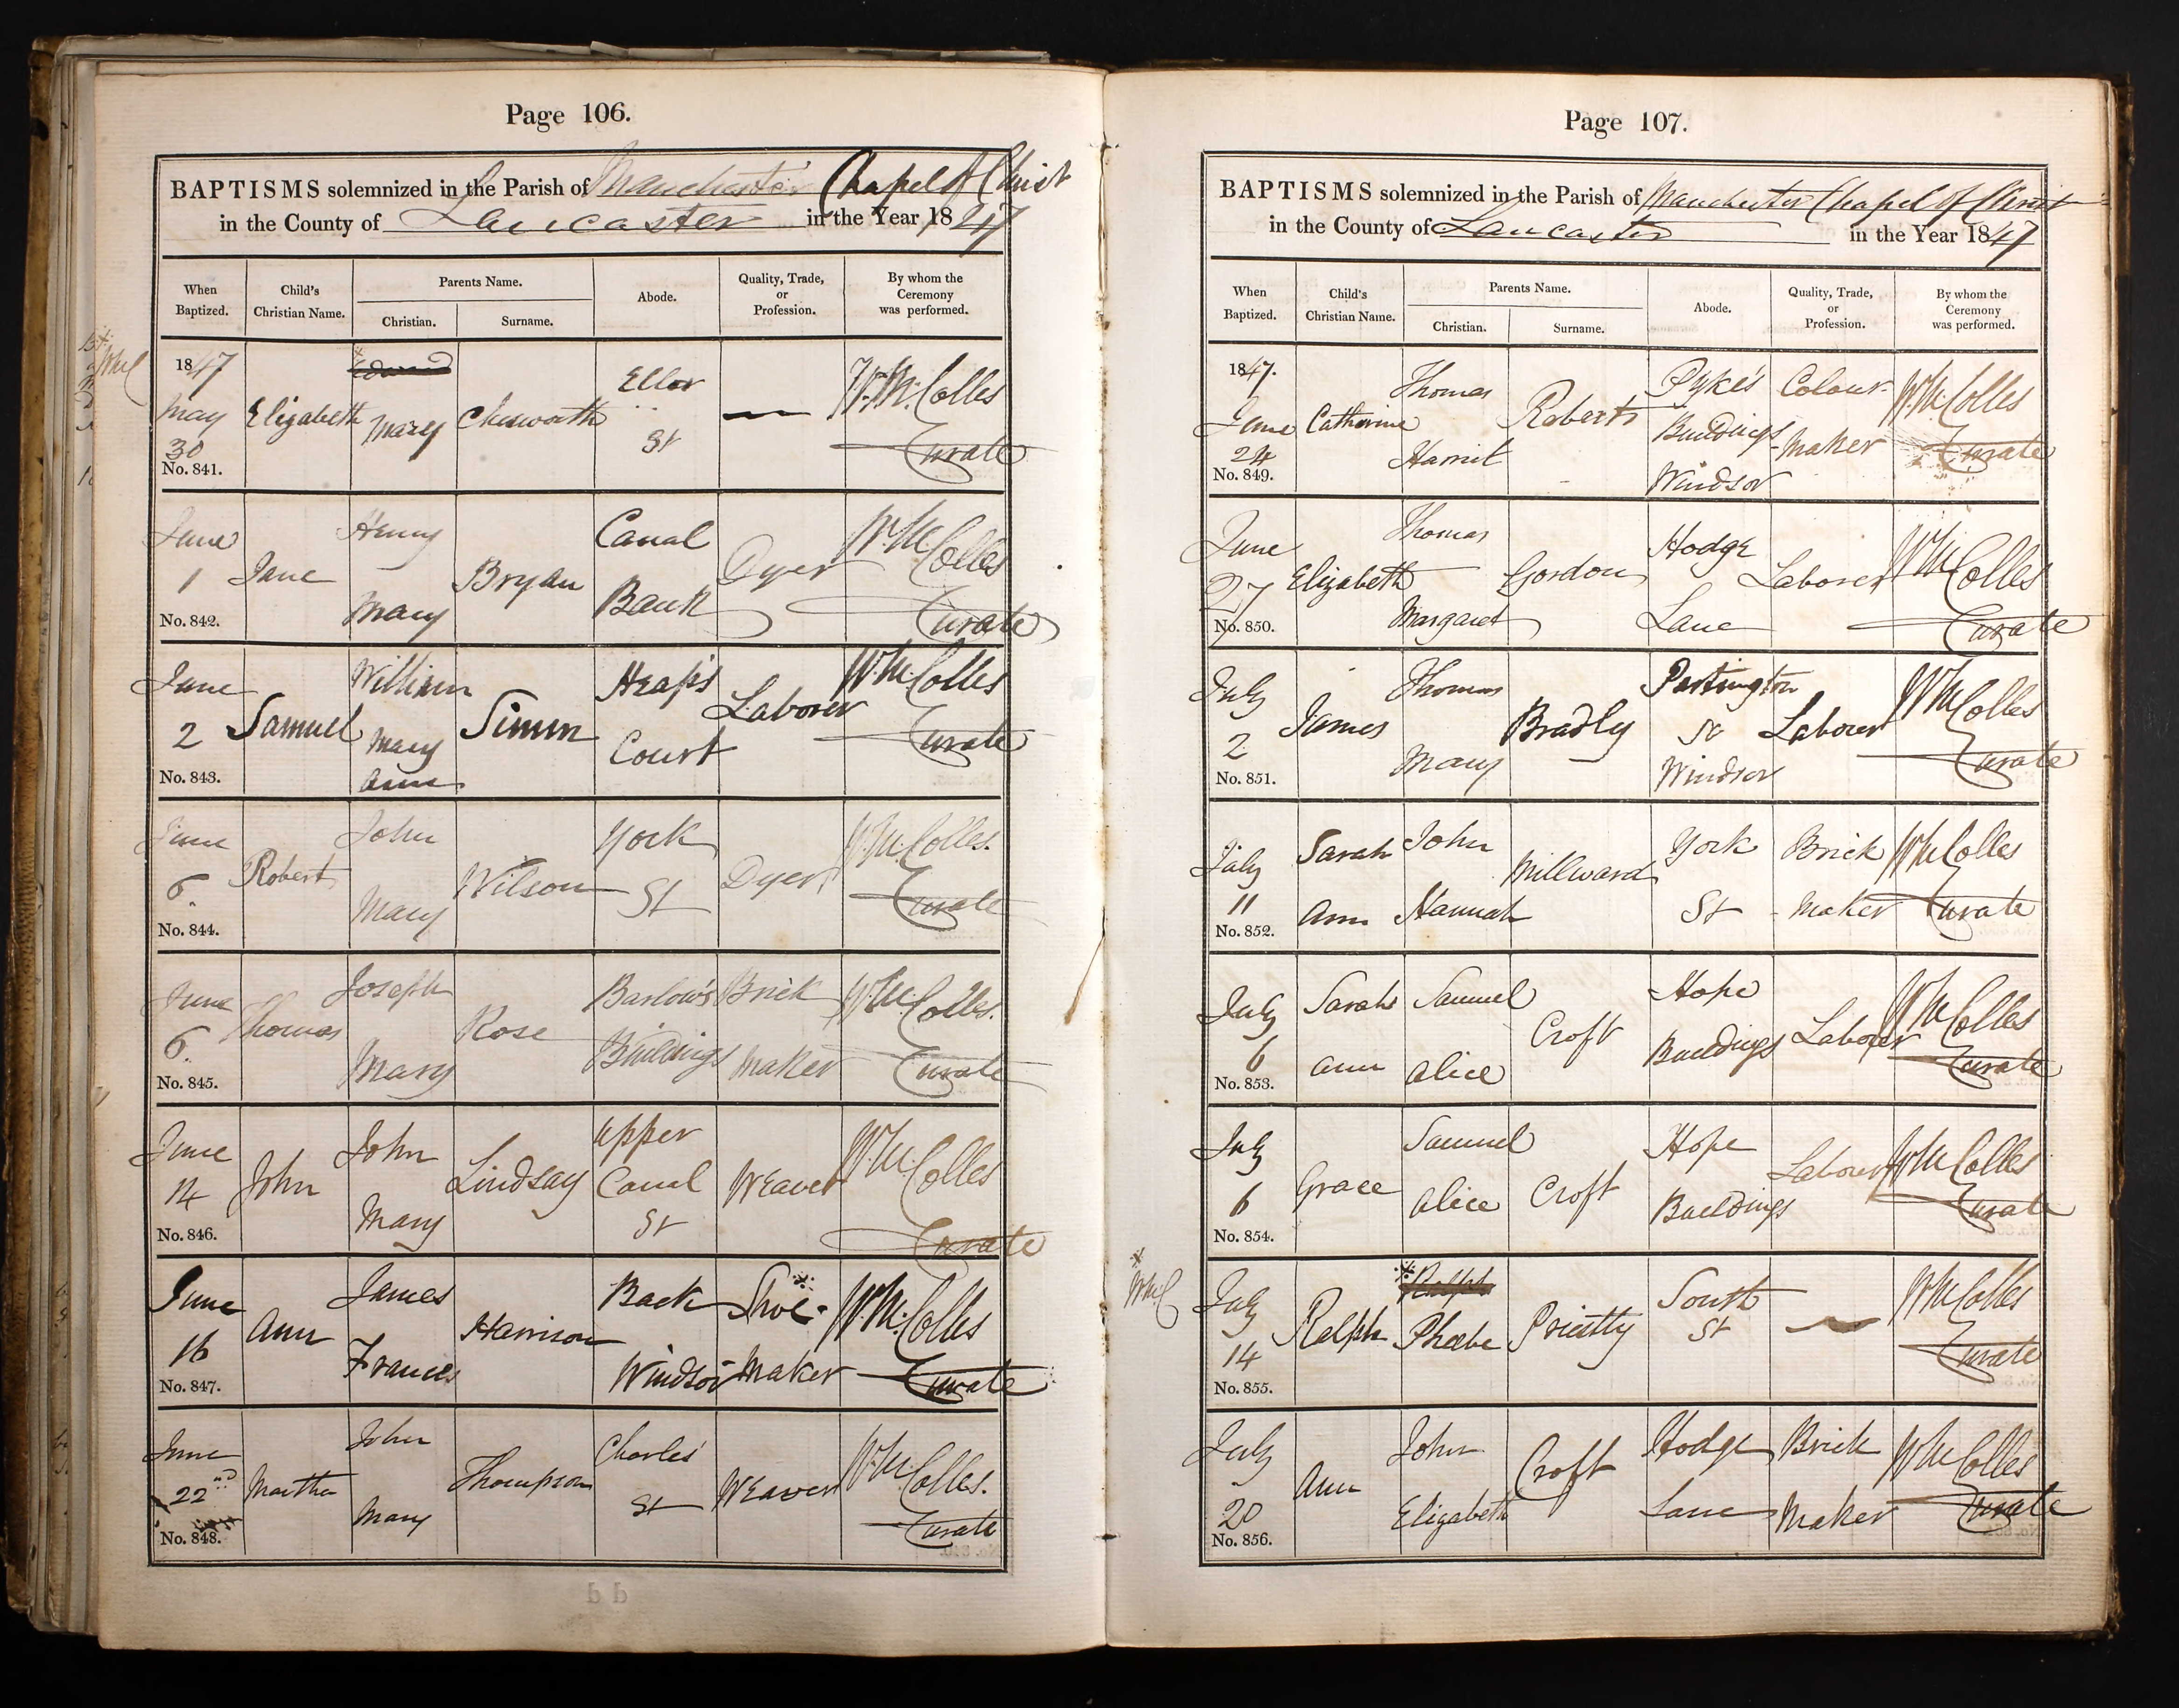 Page 106.
BAPTISMS solemnized in the Parish of Manchester Chapel of Christ
in the County of Lancaster in the Year 1847
When Baptized.
Child's Christian Name.
Parents Name.
Christian.
Surname.
Abode.
Quality, Trade, or Profession.
By whom the Ceremony was performed.
1847 May 30 No. 841.
Elizabeth
Edward
Mary
Chesworth
Ellor St
—
W. M. Colles Curate
June 1 No. 842.
Jane
Henry
Mary
Bryan
Canal Bank
Dyer
W. M. Colles Curate
June 2 No. 843.
Samuel
William
Mary Ann
Simm
Heap's Court
Laborer
W. M. Colles Curate
June 6. No. 844.
Robert
John
Mary
Wilson
York St
Dyer
W. M. Colles. Curate
June 6. No. 845.
Thomas
Joseph
Mary
Rose
Barlow's Buildings
Brick Maker
W. M. Colles. Curate
June 14 No. 846.
John
John
Mary
Lindsay
Upper Canal St
Weaver
W. M. Colles Curate
June 16 No. 847.
Ann
James
Frances
Harrison
Back Windsor
Shoe-Maker
W. M. Colles Curate
June 22nd No. 848.
Martha
John
Mary
Thompson
Charles' St
Weaver
W. M. Colles. Curate
Page 107.
BAPTISMS solemnized in the Parish of Manchester Chapel of Christ
in the County of Lancaster in the Year 1847
When Baptized.
Child's Christian Name.
Parents Name.
Christian.
Surname.
Abode.
Quality, Trade, or Profession.
By whom the Ceremony was performed.
1847. June 24 No. 849.
Catherine
Thomas
Harriet
Roberts
Pyke's Buildings Windsor
Colour-Maker
W. M. Colles Curate
June 27 No. 850.
Elizabeth
Thomas
Margaret
Gordon
Hodge Lane
Laborer
W M Colles Curate
July 2 No. 851.
James
Thomas
Mary
Bradly
Partington St Windsor
Laborer
W M Colles Curate
July 11 No. 852.
Sarah Ann
John
Hannah
Millward
York St
Brick Maker
W M Colles Curate
July 6 No. 853.
Sarah Ann
Samuel
Alice
Croft
Hope Buildings
Laborer
W M Colles Curate
July 6 No. 854.
Grace
Samuel
Alice
Croft
Hope Buildings
Laborer
W M Colles Curate
WMC
July 14 No. 855.
Ralph
Ralph
Phoebe
South St
—
W M Colles Curate
July 20 No. 856.
Ann
John
Elizabeth
Croft
Hodge Lane
Brick Maker
W M Colles Curate